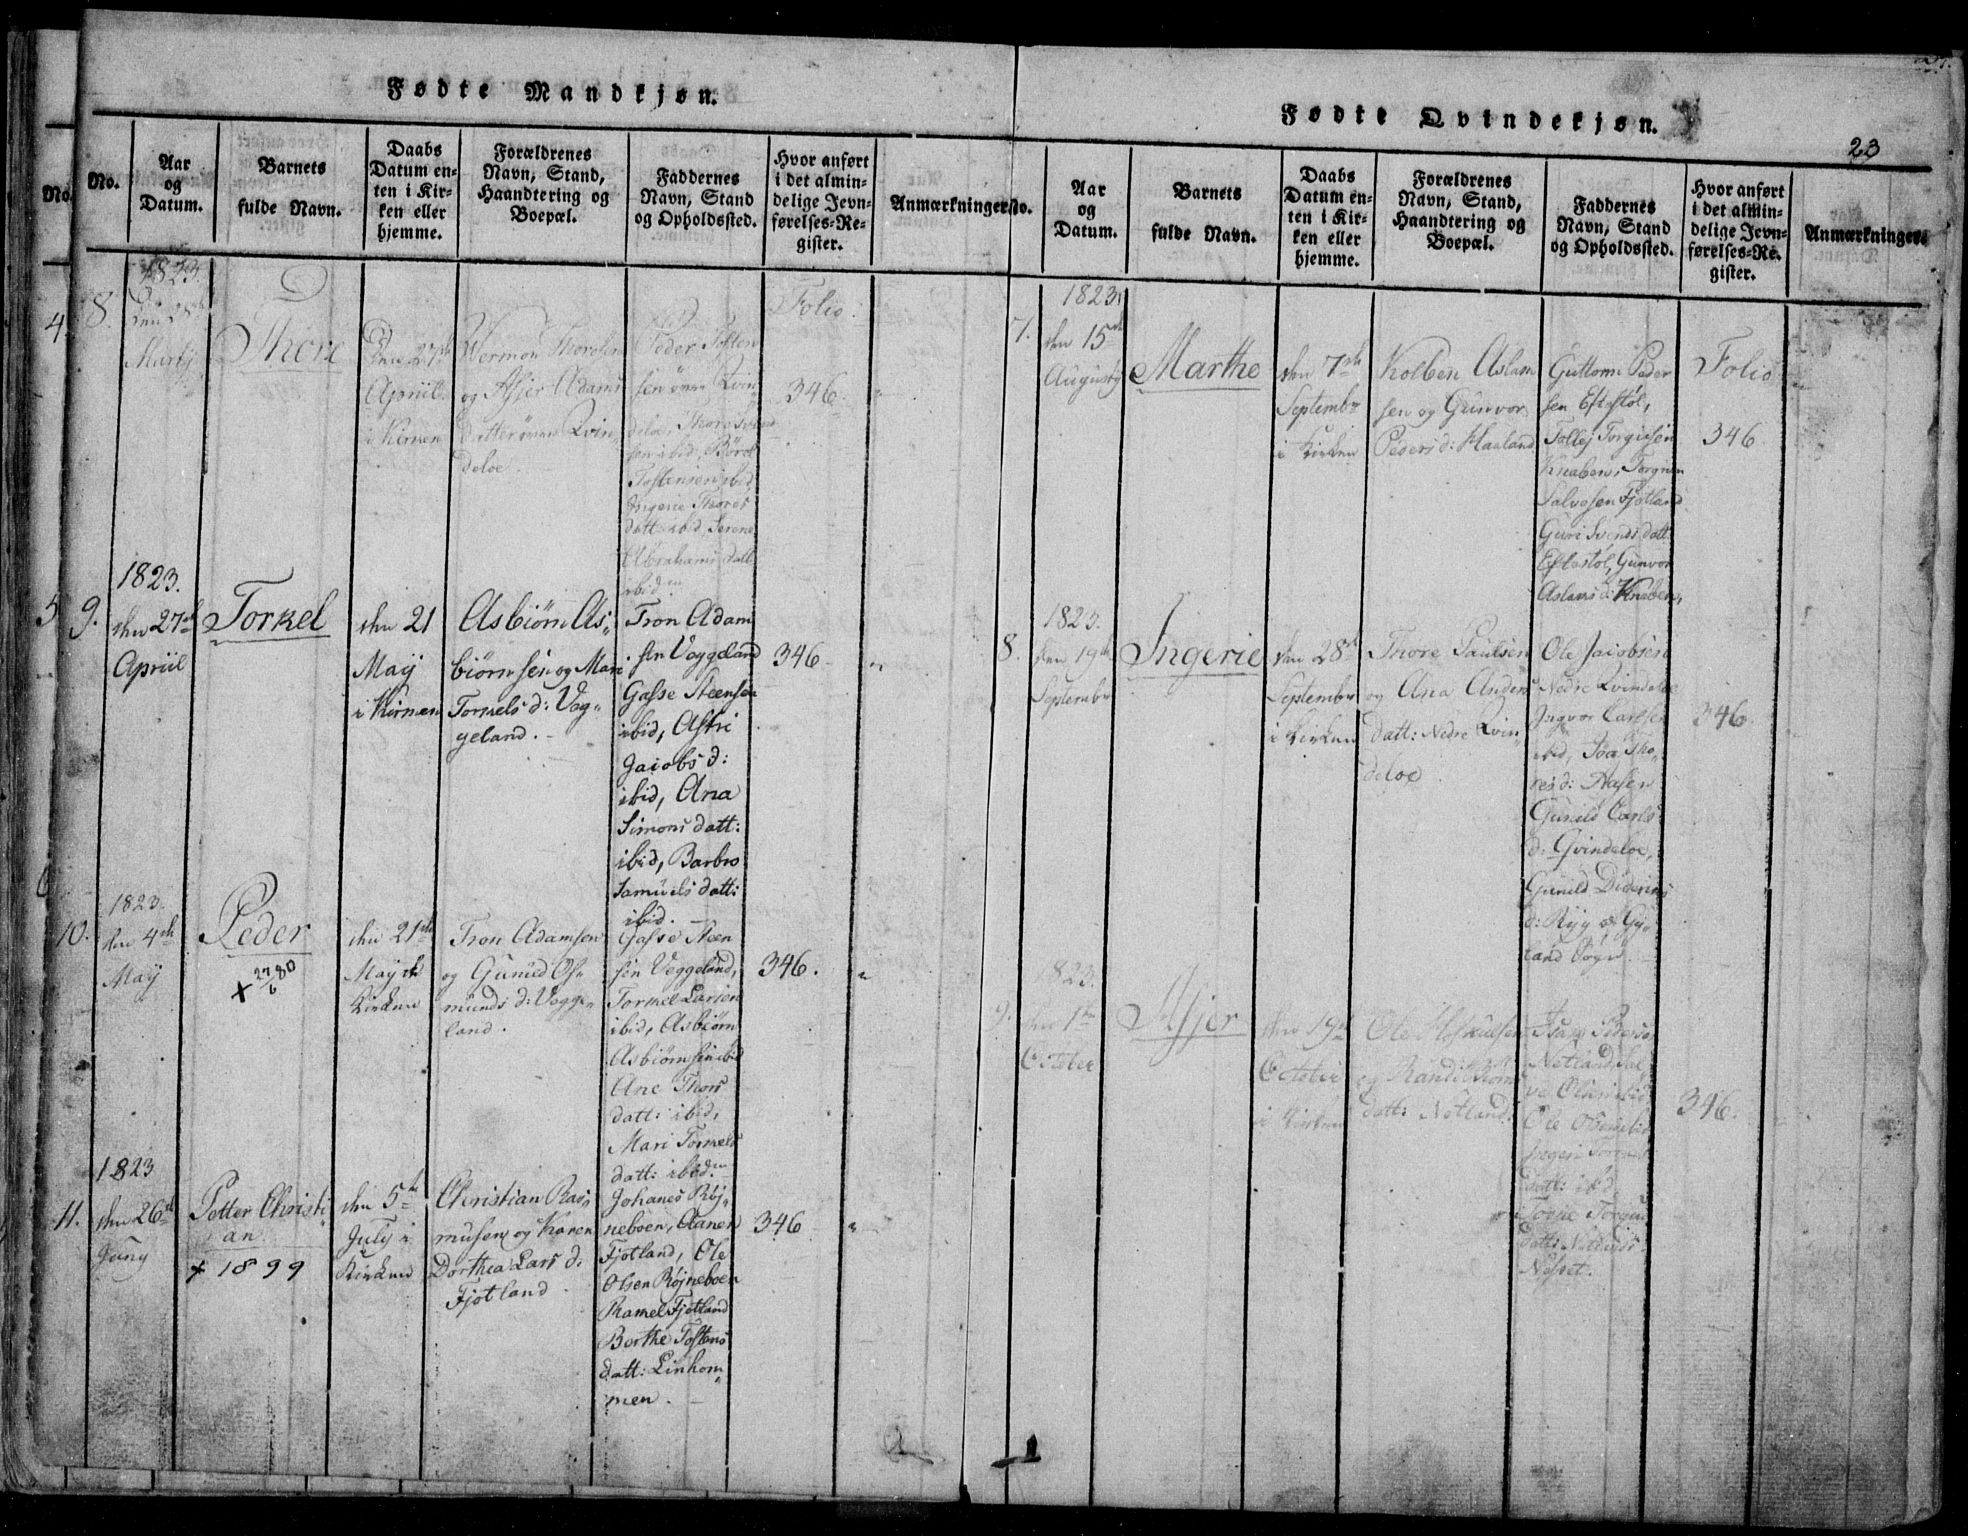 Fødte Mandkjøn.
No.
No.
Aar
og
Datum.
Barnets
fulde Navn.
Daabs
Datum en-
ten i Kir-
ken eller
hjemme.
Forældrenes
Navn, Stand,
Haandtering og
Boepæl.
Faddernes
Navn, Stand
og Opholdssted.
Hvor anført
i det almin-
delige Jevn-
førelses-Re-
gister.
Anmærkninger.
4.
8.
1823.
Martij
Thore
Den 27de
Apriil
i Kirken
og Asjer Adams
datter øvre Qvin
deloe
Peder Tosten
sen øvre Qvin
sen ibid, Børol
Tostensen ibid
Ingerie Thores
datt ibid, Serene
Abrahams datt
ibid
Folio.
346
5
9.
1823.
den 27de
Apriil
Torkel
den 21
Maÿ
i Kirken
Asbiørn As„
biørnsen og Mari
Torkels d: Vog„
geland. -
Tron Adam
sen Voggeland
Gasse Steensen
ibid, Astri
Jacobs d:
ibid, Ana
Simons datt:
ibid, Barbro
Samuels datt:
ibid. -
346
„
6
10.
1823.
den 4de
Maÿ
Peder
+ 27/6 80
den 21de
Maÿ i
Kirken
Tron Adamsen
og Gunild Os„
munds d: Vogge„
land.
Gasse Steen
sen Voggeland,
Torkel Larsen
ibid, Asbiørn
Asbiørnsen ibid
Ane Thors
datt: ibid,
Mari Torkels
datt: ibid.
346.
„
11.
1823
den 26de
Juny
Petter Christi
„an
+ 1899
den 5te
July i
Kirken
Christian Ras„
musen og Karen
Dorthea Lars d:
Fjotland.
Johanes Røj„
neboen,
Fjotland, Ole
Olsen Røjneboen
Ramel Fjotland
Borthe Tostens
datt: Linhom„
men. -
346
„
Fødte Qvindekjøn.
23
No.
Aar
og
Datum.
Barnets
fulde Navn.
Daabs
Datum en-
ten i Kir-
ken eller
hjemme.
Forældrenes
Navn, Stand,
Haandtering og
Boepæl.
Faddernes
Navn, Stand
og Opholdssted.
Hvor anført
i det almin-
delige Jevn-
førelses-Re-
gister.
Anmærkninger.
7.
1823.
den 15de
Augusty
Marthe
den 7de
Septembr
i Kirken
Kolben Aslam
sen og Gunvor
Peders d: Haaland
Guttorm Peder
sen Eftestøl,
Tollej Torgiusen
Knaben, Torgrim
Salvesen Fjotland
Guri Svends datt:
Eftestøl, Gunvor
Aslams d: Knaben,
Folio
346
8.
1823.
den 19de
Septembr
Ingerie
den 28de
Septembr
i Kirken
Thore Paulsen
og Ana Anders
datt: Nedre Qvin„
deloe
Ole Jacobsen
Nedre Qvindeloe
Ingvor Carlsen
ibid, Joa Tho„
res d: Aasen
Gunild Carls
d: Qvindeloe,
Gunild Dideriks
d: Ryg af Gy„
land Sogn. -
346.
9.
1823.
den 1te
October
Asjer
den 19de
October
i Kirken
datt: Netland.
Netland
Ole Olsen ibid
datt: ibid,
346.